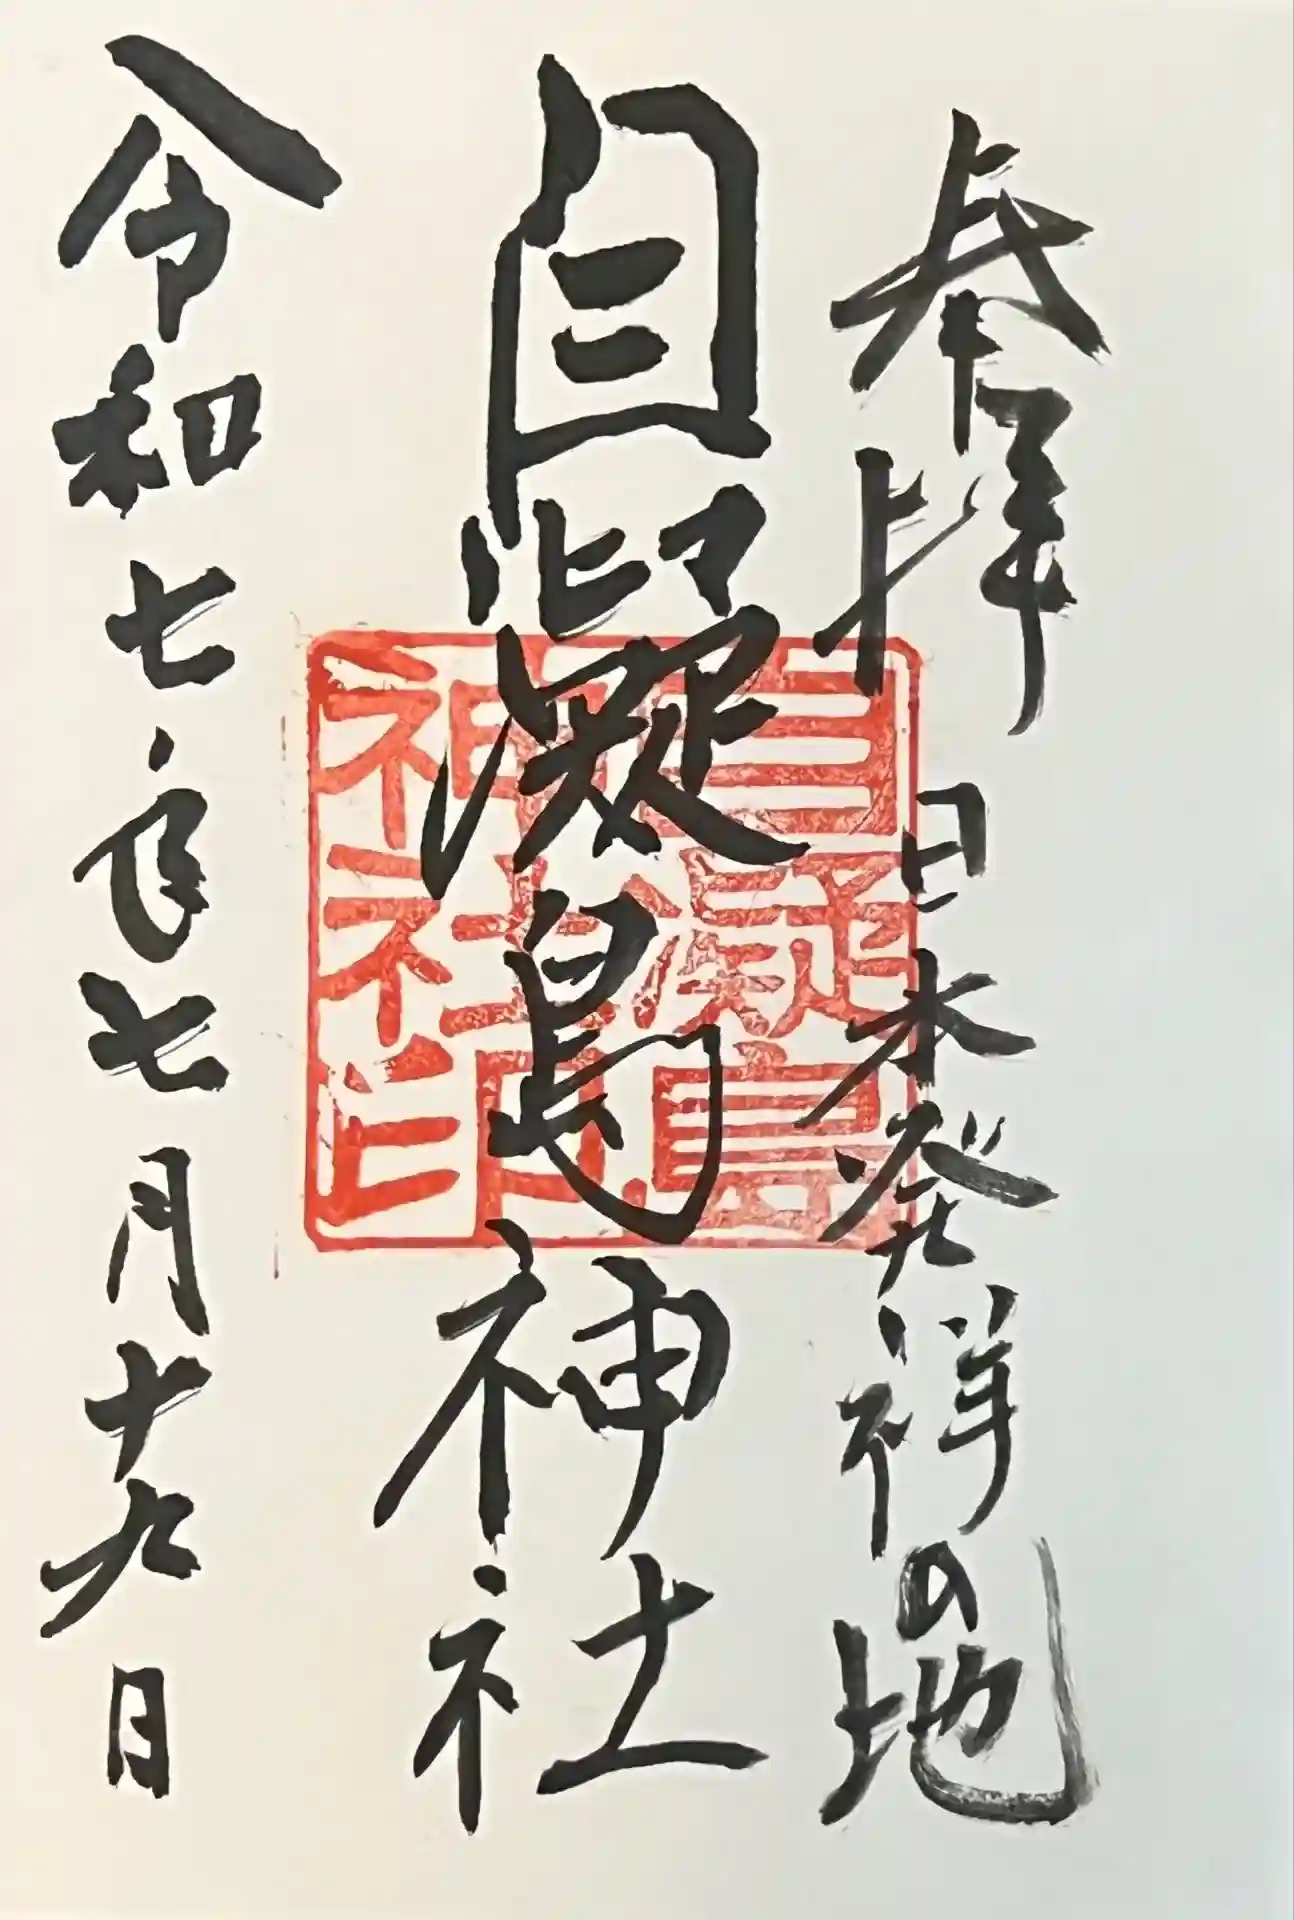 奉拝 日本発祥の地
自凝島神社
自凝島
神社印
令和七年七月十九日